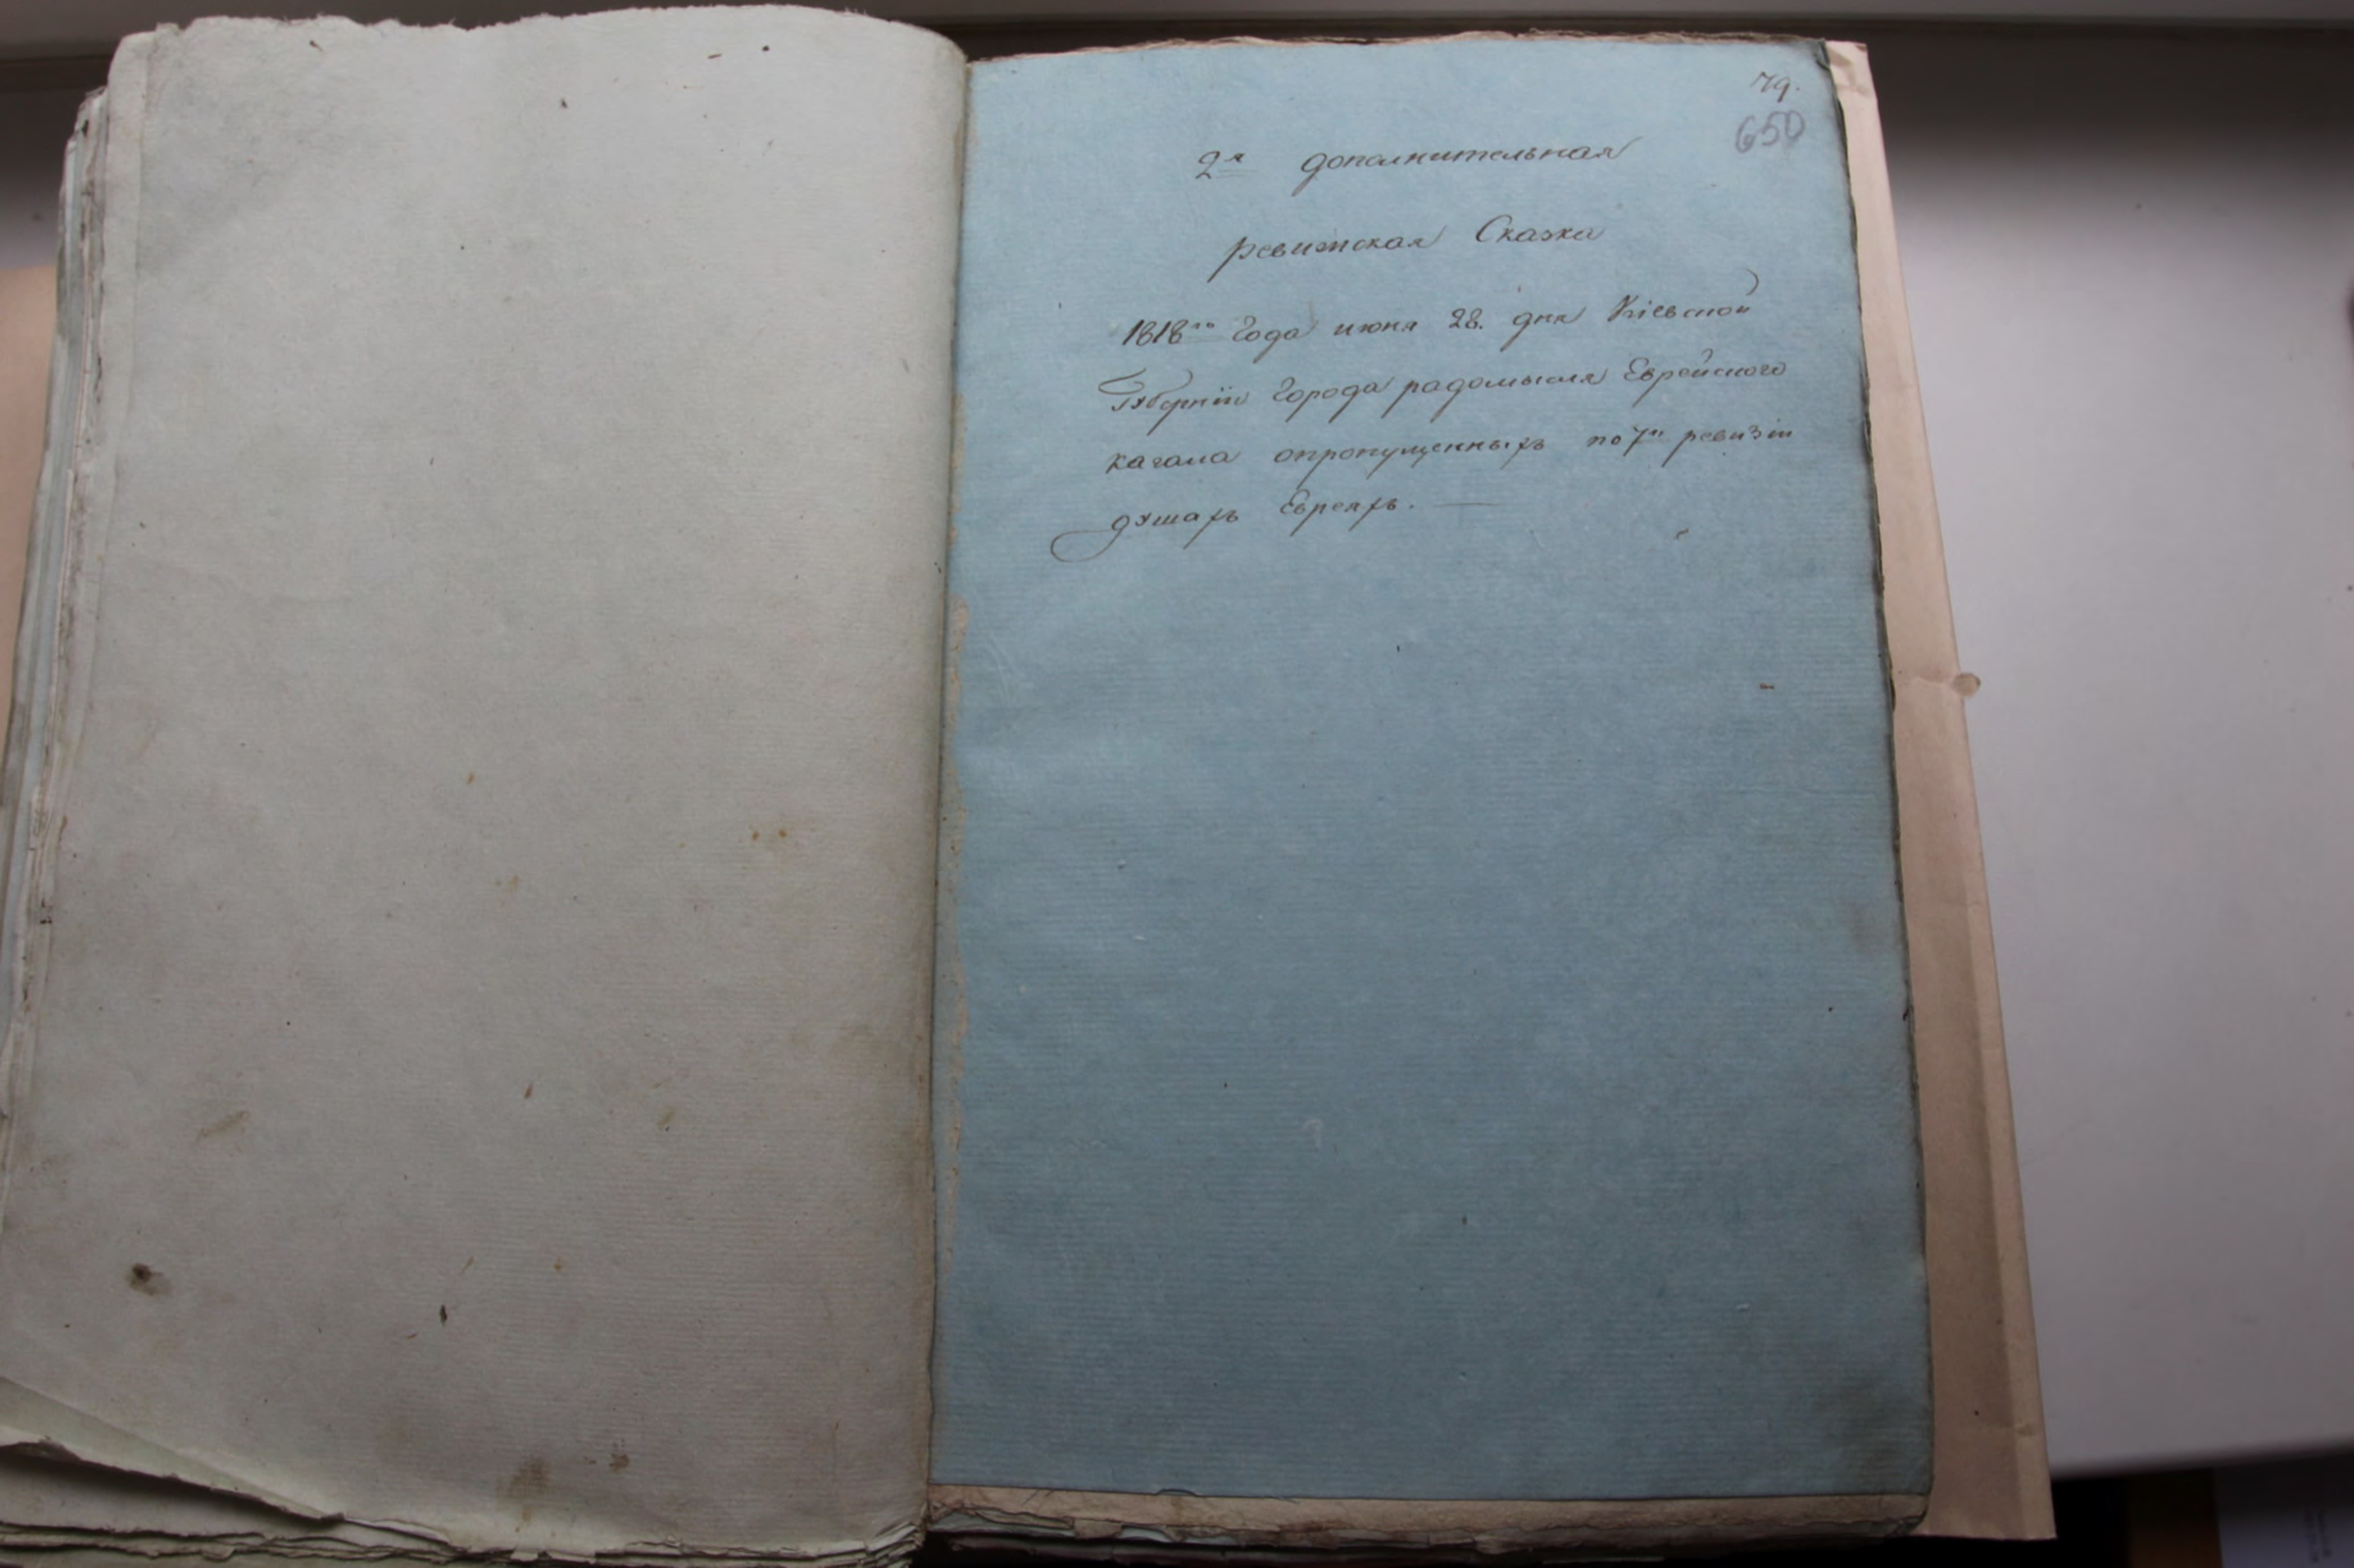 79.
650
2я дополнительная
ревижская Сказка
1818го Года июня 28. дня Кіевской
Губерніи Города радомысля Еврейского
кагала опропущенныхъ по 7й ревизіи
душахъ Евреяхъ. —